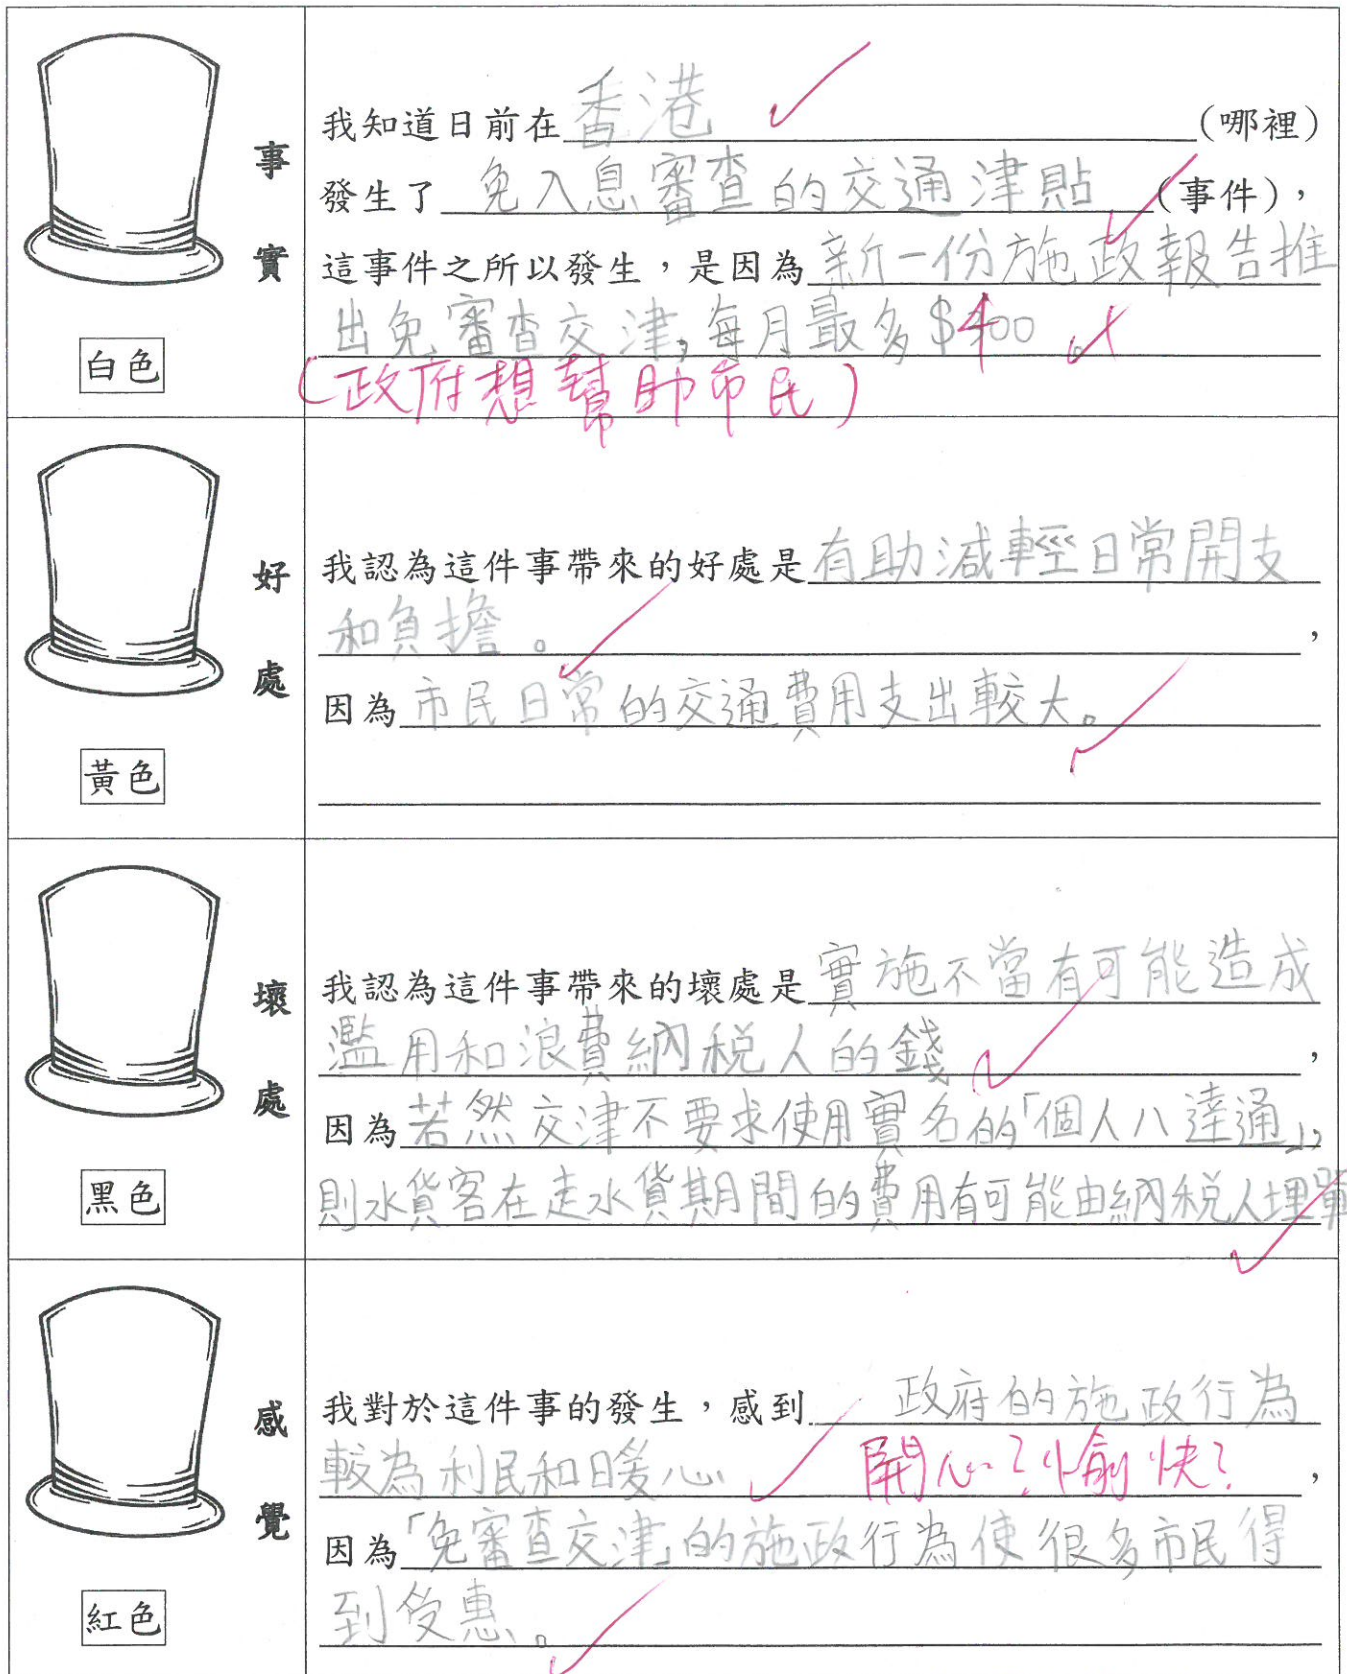 事實
白色
我知道日前在香港(哪裡)
發生了免入息審查的交通津貼(事件),
這事件之所以發生,是因為新一份施政報告推
出免審查交津,每月最多$400。
(政府想幫助市民)
好處
黃色
我認為這件事帶來的好處是有助減輕日常開支
和負擔。,
因為市民日常的交通費用支出較大。
壞處
黑色
我認為這件事帶來的壞處是實施不當有可能造成
濫用和浪費納税人的錢,
因為若然交津不要求使用實名的「個人八達通」,
則水貨客在走水貨期間的費用有可能由納税人埋單
感覺
紅色
我對於這件事的發生,感到政府的施政行為
較為利民和暖心 開心?愉快?,
因為「免審查交津」的施政行為使很多市民得
到受惠。